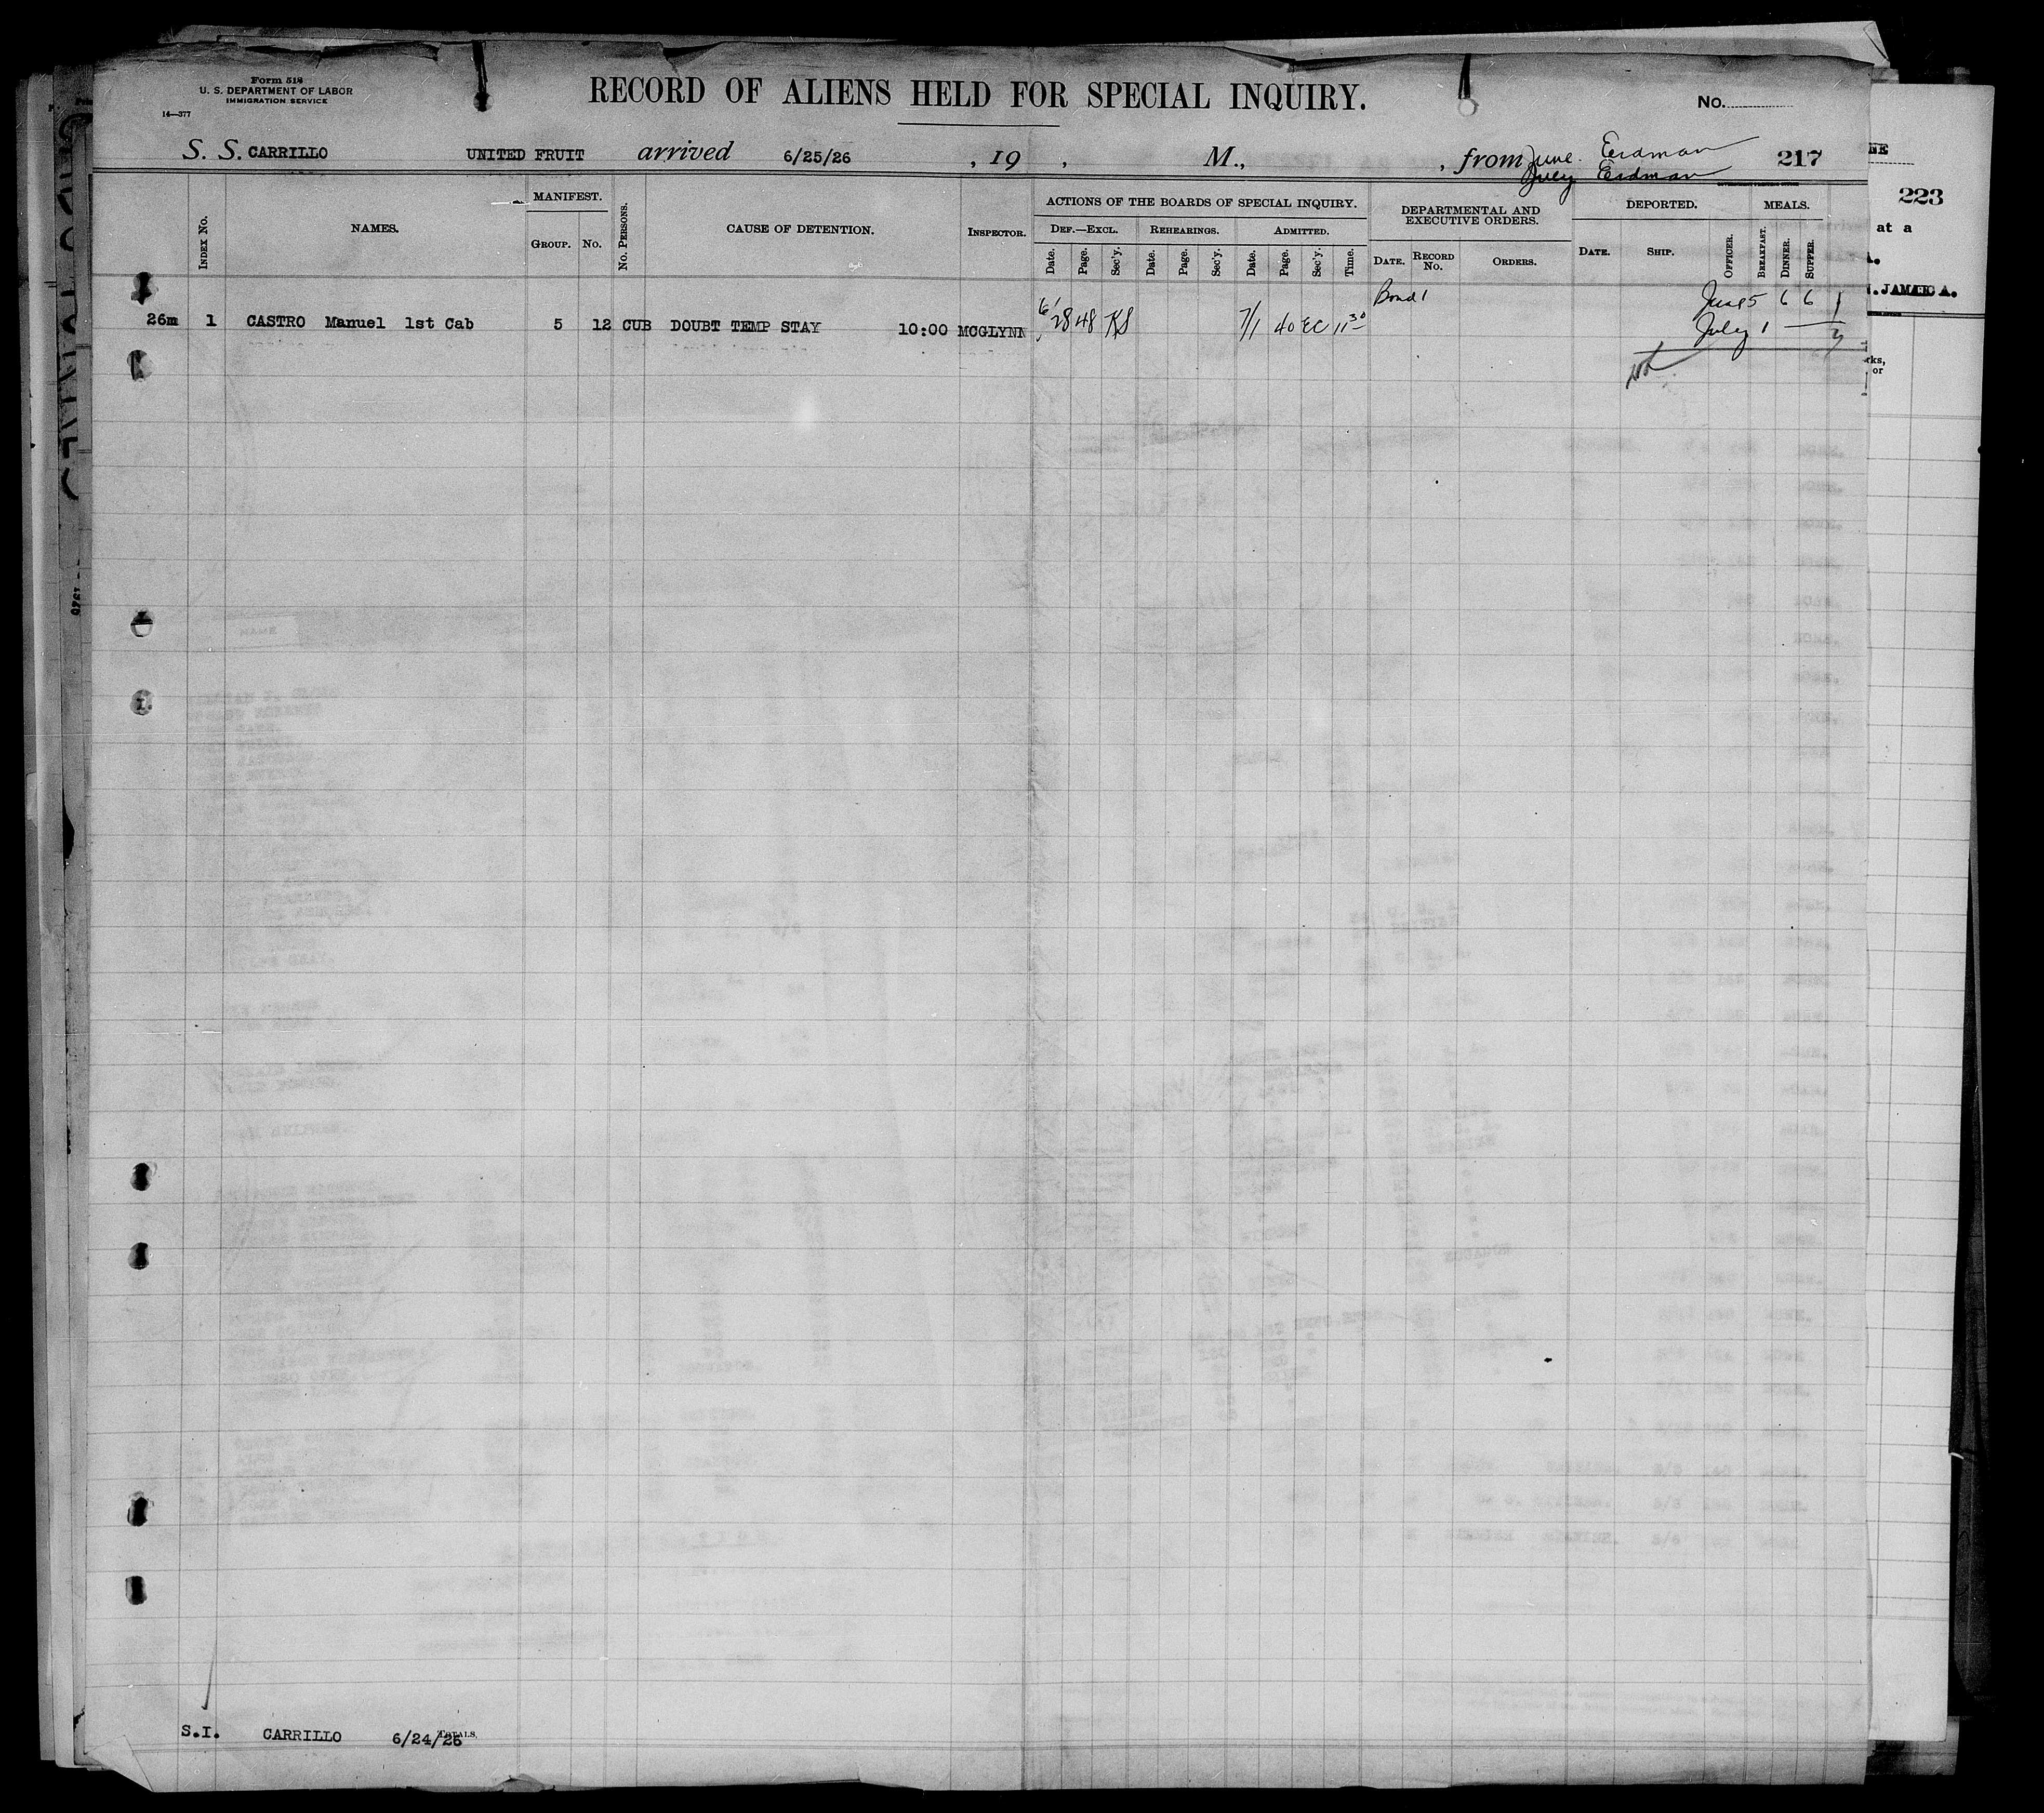 Form 518
U. S. DEPARTMENT OF LABOR
IMMIGRATION SERVICE
14—377
RECORD OF ALIENS HELD FOR SPECIAL INQUIRY.
No.
S. S. CARRILLO UNITED FRUIT arrived 6/25/26 , 19 , M., , from June Erdman 217
July Erdman
INDEX NO. NAMES. MANIFEST. GROUP. NO. NO. PERSONS. CAUSE OF DETENTION. INSPECTOR.
ACTIONS OF THE BOARDS OF SPECIAL INQUIRY.
DEF.—EXCL. REHEARINGS. ADMITTED.
Date. Page. Sec'y. Date. Page. Sec'y. Date. Page. Sec'y. Time.
DEPARTMENTAL AND EXECUTIVE ORDERS.
DATE. RECORD NO. ORDERS.
DEPORTED.
DATE. SHIP. OFFICER.
MEALS.
BREAKFAST. DINNER. SUPPER.
Bond 1 June 5 6 6 1
26m 1 CASTRO Manuel 1st Cab 5 12 CUB DOUBT TEMP STAY 10:00 MCGLYNN 6/28 48 KS 7/1 40 EC 11 30 July 1
NAME
S.I. CARRILLO 6/24/26 TOTALS.
NE
223
at a
A.
N. JAMAICA.
rks,
or